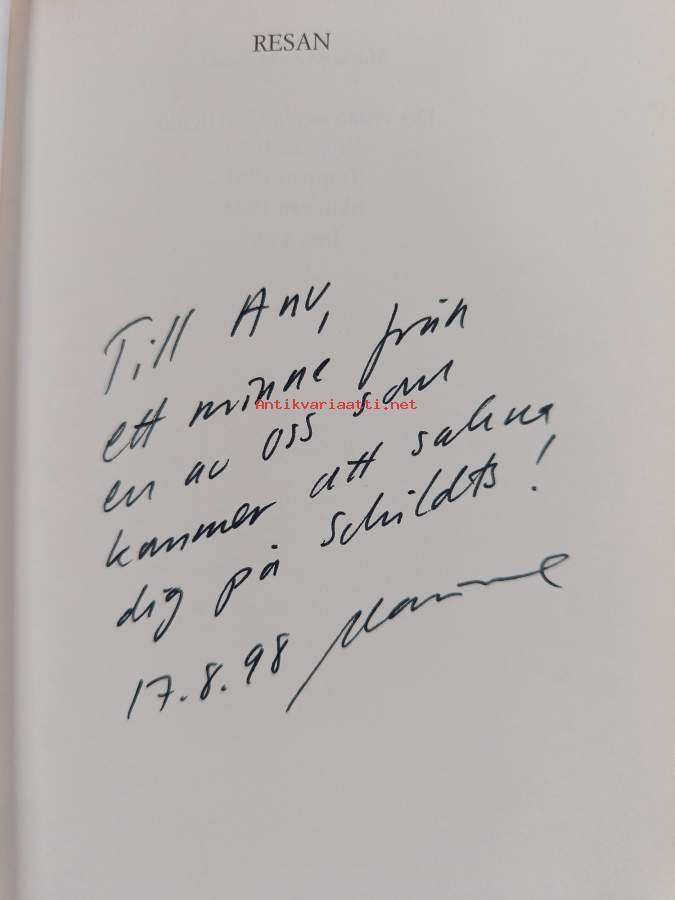 RESAN
Till Ann,
ett minne från
Antikvariaatti.net
en av oss som
kommer att sakna
dig på Schildts!
17.8.98